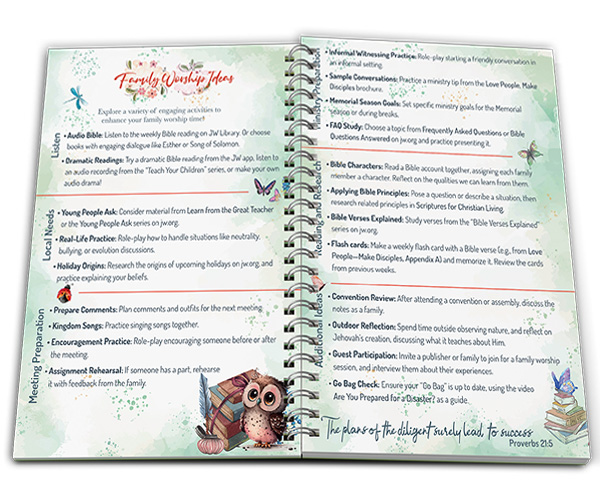 Family Worship Ideas
Explore a variety of engaging activities to
enhance your family worship time!
Listen
• Audio Bible: Listen to the weekly Bible reading on JW Library. Or choose
books with engaging dialogue like Esther or Song of Solomon.
• Dramatic Readings: Try a dramatic Bible reading from the JW app, listen to
an audio recording from the "Teach Your Children" series, or make your own
audio drama!
Local Needs
• Young People Ask: Consider material from Learn from the Great Teacher
or the Young People Ask series on jw.org.
• Real-Life Practice: Role-play how to handle situations like neutrality,
bullying, or evolution discussions.
• Holiday Origins: Research the origins of upcoming holidays on jw.org, and
practice explaining your beliefs.
Meeting Preparation
• Prepare Comments: Plan comments and outfits for the next meeting.
• Kingdom Songs: Practice singing songs together.
• Encouragement Practice: Role-play encouraging someone before or after
the meeting.
• Assignment Rehearsal: If someone has a part, rehearse
it with feedback from the family.
Ministry Preparation
• Informal Witnessing Practice: Role-play starting a friendly conversation in
an informal setting.
• Sample Conversations: Practice a ministry tip from the Love People, Make
Disciples brochure.
• Memorial Season Goals: Set specific ministry goals for the Memorial
season or during breaks.
• FAQ Study: Choose a topic from Frequently Asked Questions or Bible
Questions Answered on jw.org and practice presenting it.
Reading and Research
• Bible Characters: Read a Bible account together, assigning each family
member a character. Reflect on the qualities we can learn from them.
• Applying Bible Principles: Pose a question or describe a situation, then
research related principles in Scriptures for Christian Living.
• Bible Verses Explained: Study verses from the "Bible Verses Explained"
series on jw.org.
• Flash cards: Make a weekly flash card with a Bible verse (e.g., from Love
People—Make Disciples, Appendix A) and memorize it. Review the cards
from previous weeks.
Additional Ideas
• Convention Review: After attending a convention or assembly, discuss the
notes as a family.
• Outdoor Reflection: Spend time outside observing nature, and reflect on
Jehovah's creation, discussing what it teaches about Him.
• Guest Participation: Invite a publisher or family to join for a family worship
session, and interview them about their experiences.
• Go Bag Check: Ensure your "Go Bag" is up to date, using the video
Are You Prepared for a Disaster? as a guide.
The plans of the diligent surely lead to success
Proverbs 21:5